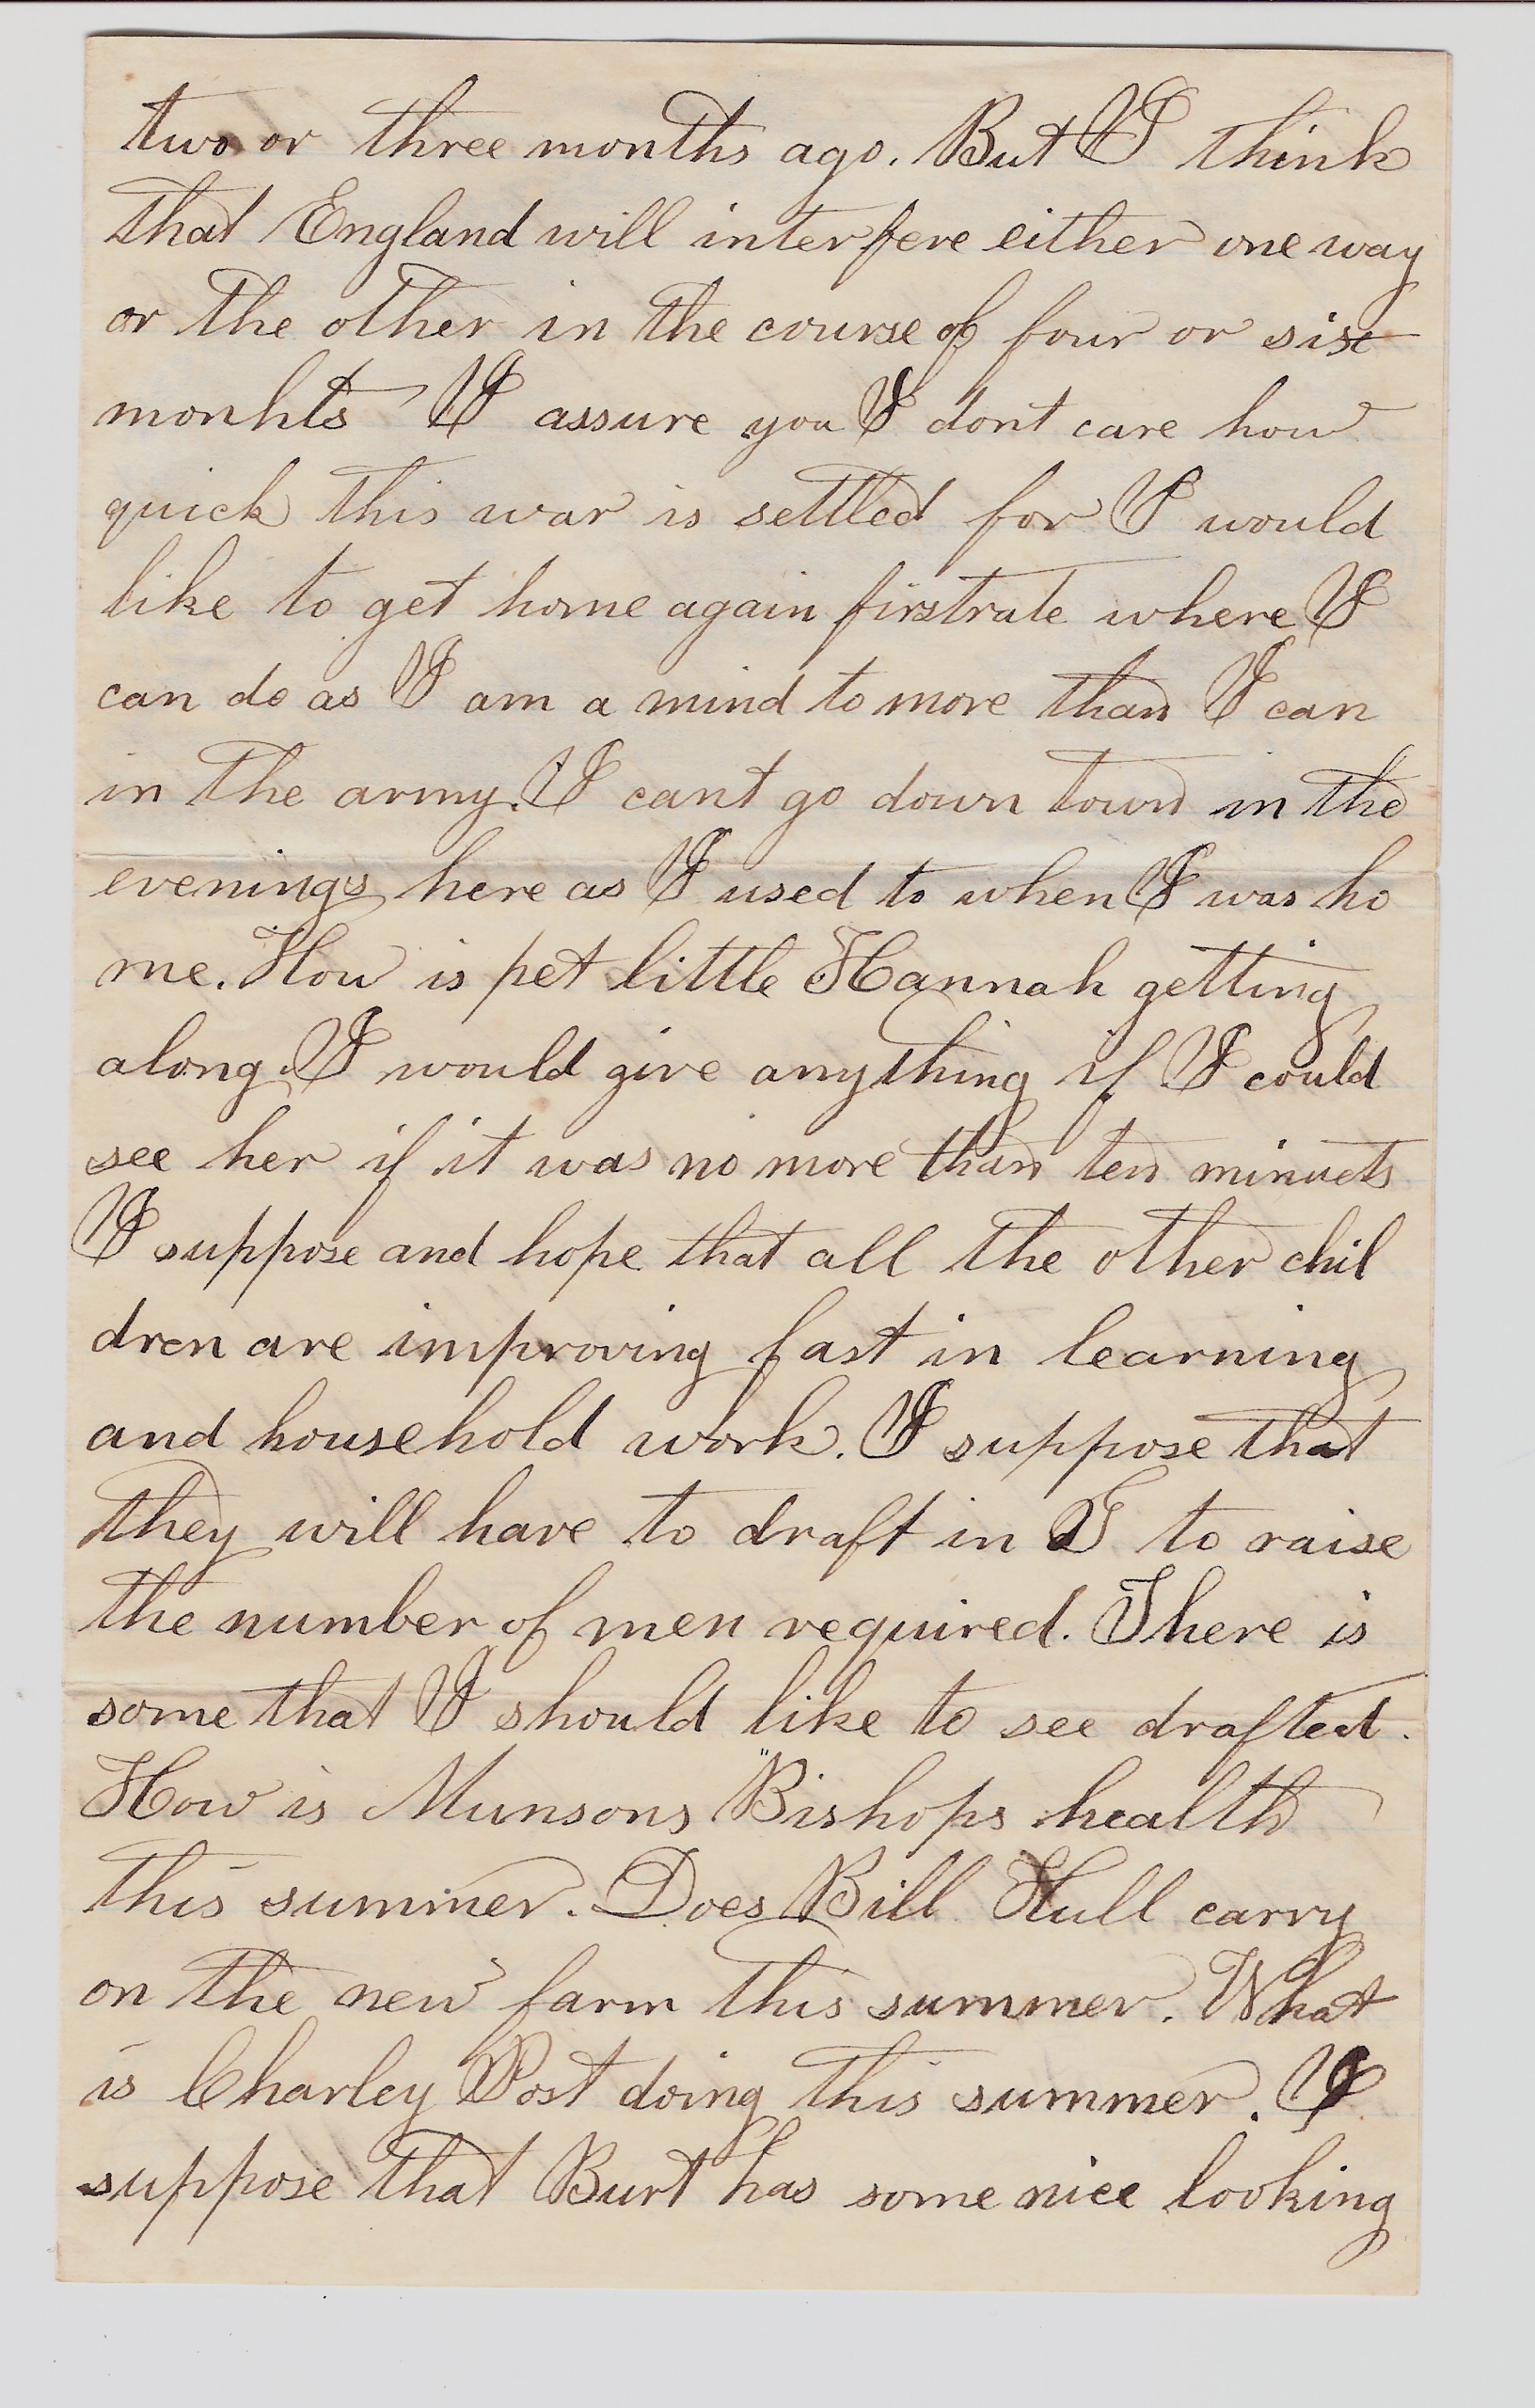 two or three months ago. But I think
that England will interfere either one way
or the other in the course of four or six
monhts I assure you I dont care how
quick this war is settled for I would
like to get home again firstrate where I
can do as I am a mind to more than I can
in the army. I cant go down town in the
evenings here as I used to when I was ho
me. How is pet little Hannah getting
along. I would give anything if I could
see her if it was no more than ten minuets
I suppose and hope that all the other chil
dren are improving fast in learning
and household work. I suppose that
they will have to draft in G to raise
the number of men required. There is
some that I should like to see drafted.
How is Munsons Bishops health
this summer. Does Bill Hull carry
on the new farm this summer. What
is Charley Post doing this summer. I
suppose that Burt has some nice looking